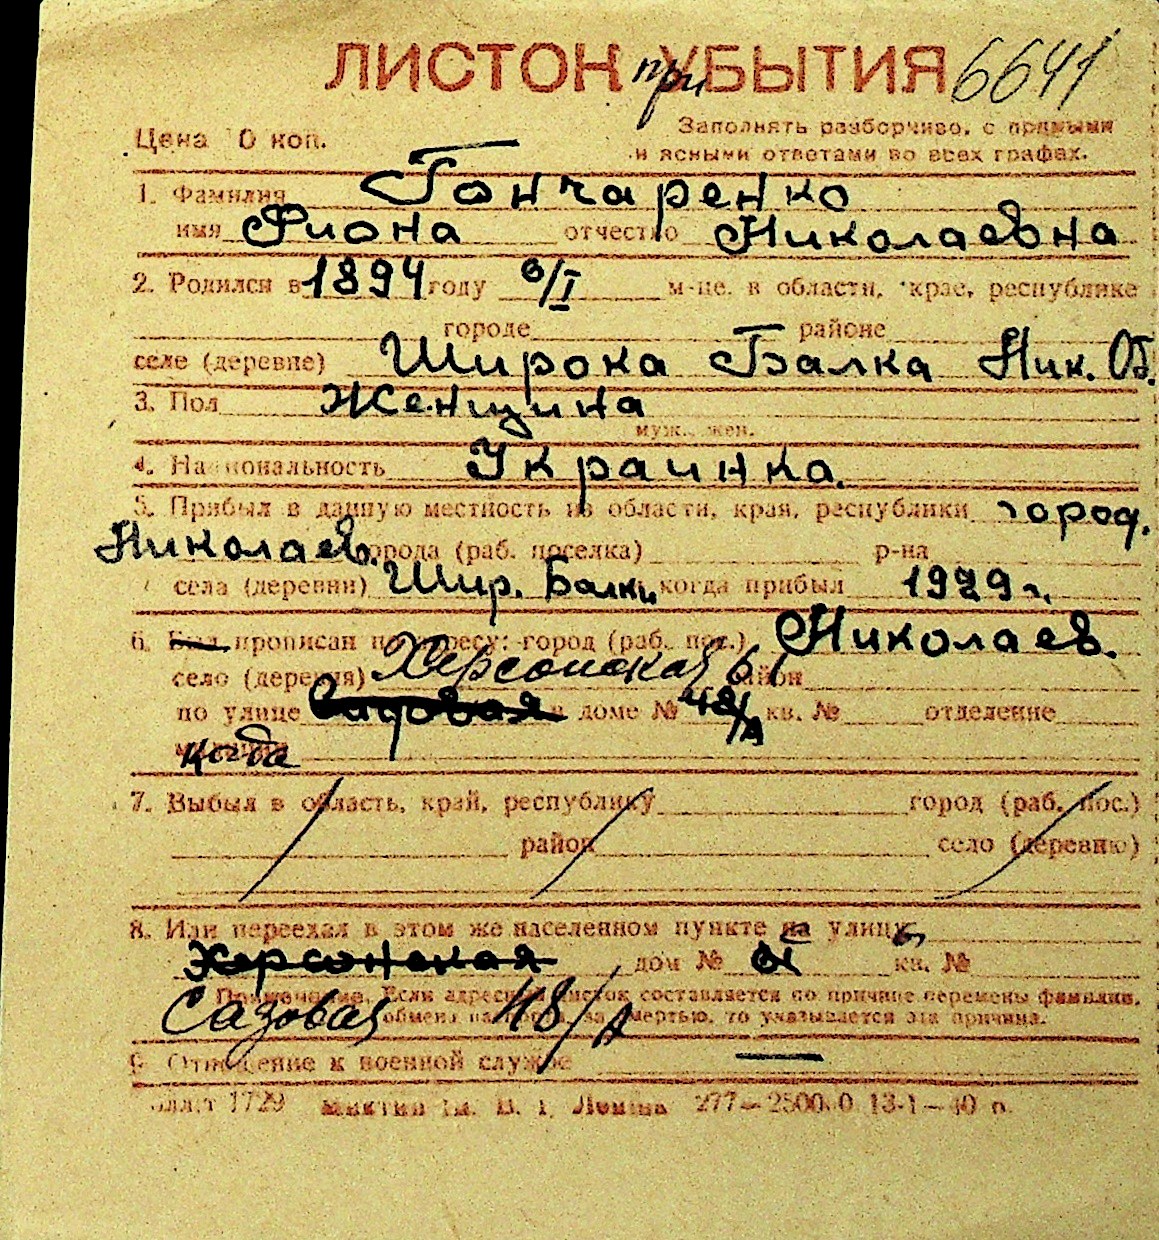 ЛИСТОК при УБЫТИЯ 6641
Цена 10 коп.
Заполнять разборчиво, с прямыми
и ясными ответами во всех графах.
1. Фамилия Гончаренко
имя Фиона отчество Николаевна
2. Родился в 1894 году 6/I м-це. в области, крае, республике
городе районе
селе (деревне) Широка Балка Ник. Об.
3. Пол Женщина
муж., жен.
4. Национальность Украинка.
5. Прибыл в данную местность из области, края, республики город.
Николаев. города (раб. поселка) р-на
села (деревни) Шир. Балки когда прибыл 1929 г.
6. Был прописан по адресу: город (раб. пос.) Николаев.
село (деревня) Херсонская 61 район
по улице Садовая в доме № 48/А кв. № отделение
когда
7. Выбыл в область, край, республику город (раб. пос.)
район село (деревню)
8. Или переехал в этом же населенном пункте на улицу
Херсонская дом № кв. №
Примечание. Если адресный листок составляется по причине перемены фамилии,
Садовая 18/А
обмена паспорта, за смертью, то указывается эта причина.
9. Отношение к военной службе —
1729 В. І. Леніна 277— 13-1—40 р.